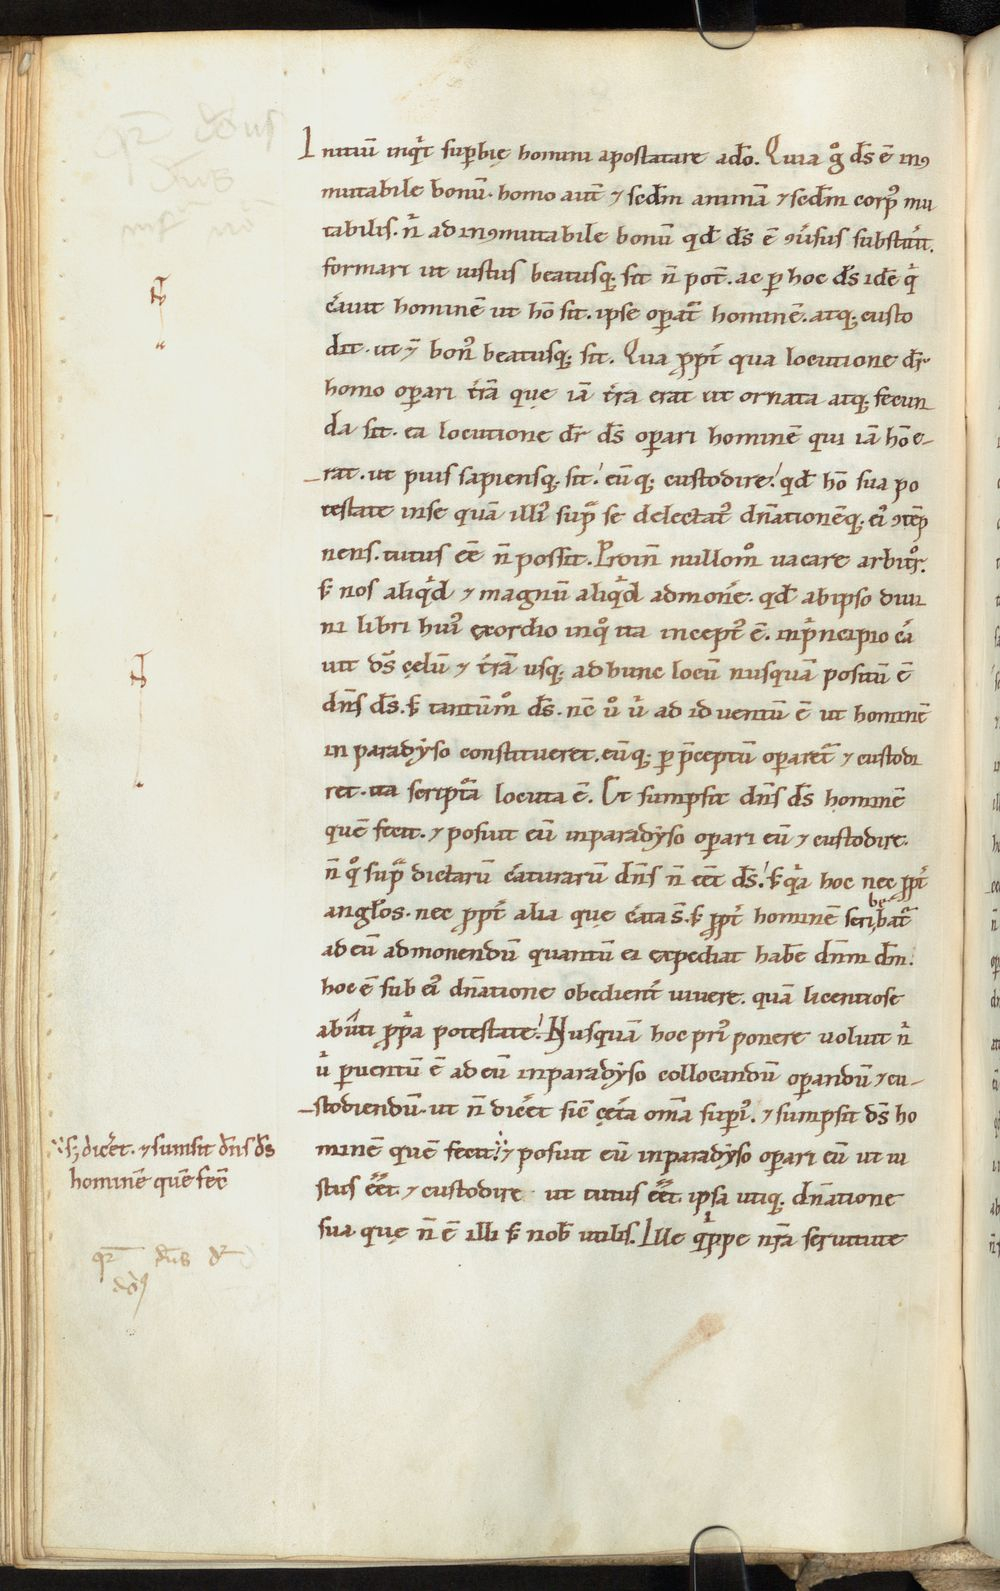 Initiū inqͥt supbię homini apostatare a do. Quia gͦ ds̄ ē inꝯ
mutabile bonū. homo aut̄ ⁊ sedm̄ animā ⁊ sedm̄ corpꝰ mu
tabilis. nͥ ad inꝯmutabile bonū qd̄ ds̄ ē ꝯuͥsus substitit̄.
formari ut iustus beatusq; sit n̄ pot̄. ac ꝑ hoc ds̄ idē qͥ
cͣuit hominē ut hō sit. ipse operat̄ hominē. atq; custo
dit. ut ⁊ bonꝰ beatusq; sit. Qua ꝓpt̄ qua locutione dr̄
homo oꝑari tͥrā quę iā tͥra erat ut ornata atq; fecun
da sit. ea locutione dr̄ ds̄ oꝑari hominē qui iā hō e-
rat. ut pius sapiensq; sit. eūq; custodire. qd̄ hō sua po
testate in se quā illiꝰ supͣ se delectatꝰ dn̄ationēq; eiꝰ ꝯtēp
nens. tutus eē n̄ possit. Proin̄ nullom̊ uacare arbitͦr.
s; nos aliqͥd ⁊ magnū aliqͥd admonē. qd̄ ab ipso diui
ni libri huiꝰ exordio in qͦ ita inceptꝰ ē. in pͥncipio cͣa
uit ds̄ cęlū ⁊ tͥrā usq; ad hunc locū nusquā positū ē
dn̄s ds̄. s; tantūm̊ ds̄. nc̄ uͦ uͥ ad id uentū ē ut hominē
in paradẏso constitueret. eūq; ꝑ p̄ceptū oꝑaret̄ ⁊ custodi
ret. ita scriptͣa locuta ē. Et sumpsit dn̄s ds̄ hominē
quē fecit. ⁊ posuit eū in paradẏso oꝑari eū ⁊ custodire.
n̄ qͦ supͣ dictarū cͣaturarū dn̄s n̄ eēt ds̄. s; qͥa hoc nec ꝓpt̄
anglos. nec ꝓpt̄ alia quę cͣata s̄. s; ꝓpt̄ hominē scribebat̄
ad eū admonendū quantū ei expediat habē dn̄m dm̄.
hoc ē sub eiꝰ dn̄atione obedient̄ uiuere. quā licentiose
abuti ꝓpͥa potestate. Nusquā hoc priꝰ ponere uoluit nͥ
uͥ ꝑuentū ē ad eū in paradẏso collocandū oꝑandū ⁊ cu-
stodiendū. ut n̄ dicͥet sic̄ cęt̄a om̄a supiꝰ. ⁊ sumpsit ds̄ ho
minē quē fecit. ⁊ posuit eū in paradẏso oꝑari eū ut iu
stus eēt. ⁊ custodire ut tutus eēt. ipsa utiq; dn̄atione
sua quę n̄ ē illi s; nob̄ utilis. Ille qͥppe nr̄a seruitute
s; dicͥet. ⁊ sumsit dn̄s ds̄
hominē quē fec̄